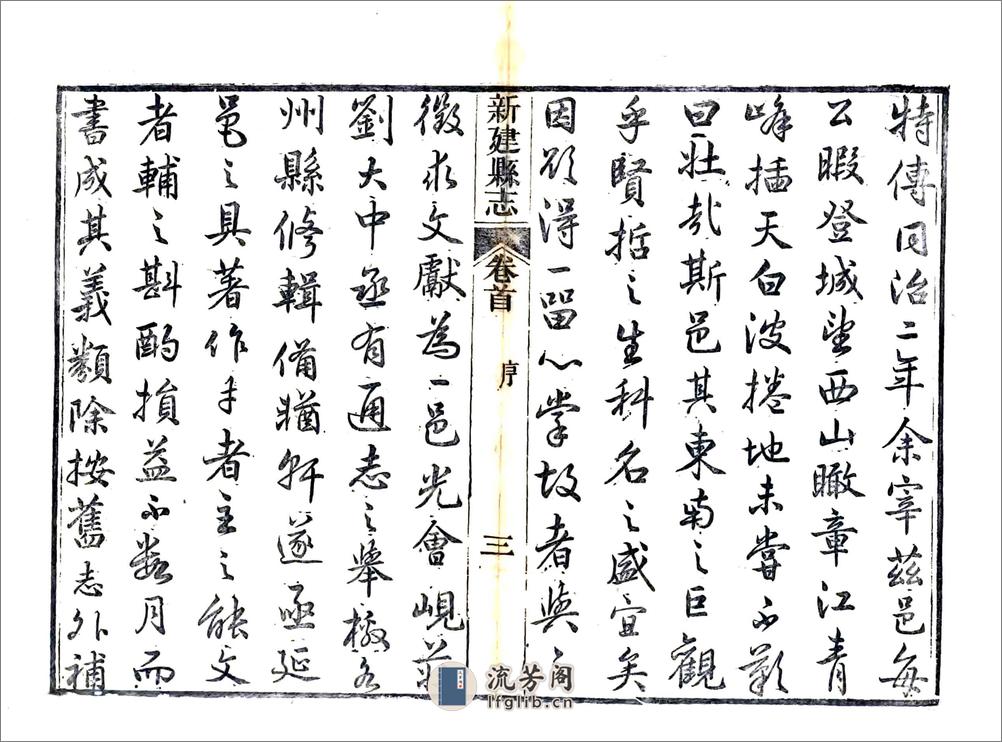 特傳同治二年余宰茲邑每
公暇登城望西山瞰章江青
峰插天白波捲地未嘗不歎
曰壯哉斯邑其東南之巨觀
乎賢哲之生科名之盛宜矣
因欲得一留心掌故者與之
新建縣志 卷首 序 三
徵求文獻為一邑光會峴莊
劉大中丞有通志之舉檄各
州縣修輯備輶軒遂亟延
邑之具著作才者主之能文
者輔之斟酌損益不數月而
書成其義類除按舊志外補
流芳阁
lfglib.cn